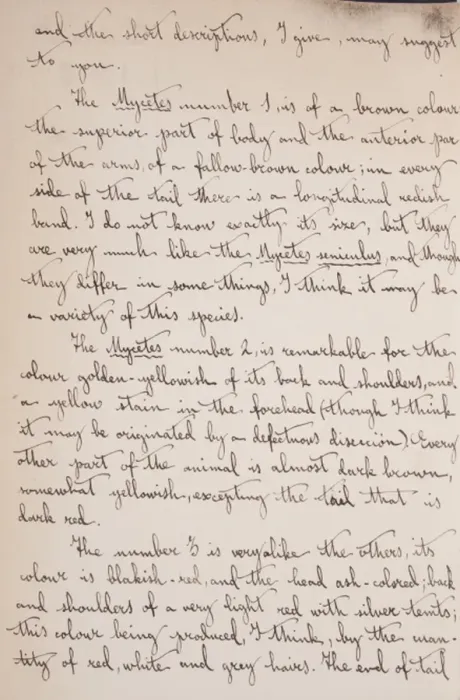 and the short descriptions, I give, may suggest
to you.
The Mycetes number 1, is of a brown colour
the superior part of body and the anterior par
of the arms, of a fallow-brown colour; in every
side of the tail there is a longitudinal redish
band. I do not know exactly its size, but they
are very much like the Mycetes seniculus, and though
they differ in some things, I think it may be
a variety of this species.
The Mycetes number 2, is remarkable for the
colour golden-yellowish of its back and shoulders, and
a yellow stain in the forehead (though I think
it may be originated by a defectuous disección). Every
other part of the animal is almost dark brown,
somewhat yellowish, excepting the tail that is
dark red.
The number 3 is very alike the others, its
colour is blakish-red, and the head ash-colored; back
and shoulders of a very light red with silver tents;
this colour being produced, I think, by the man-
tity of red, white and grey hairs. The end of tail